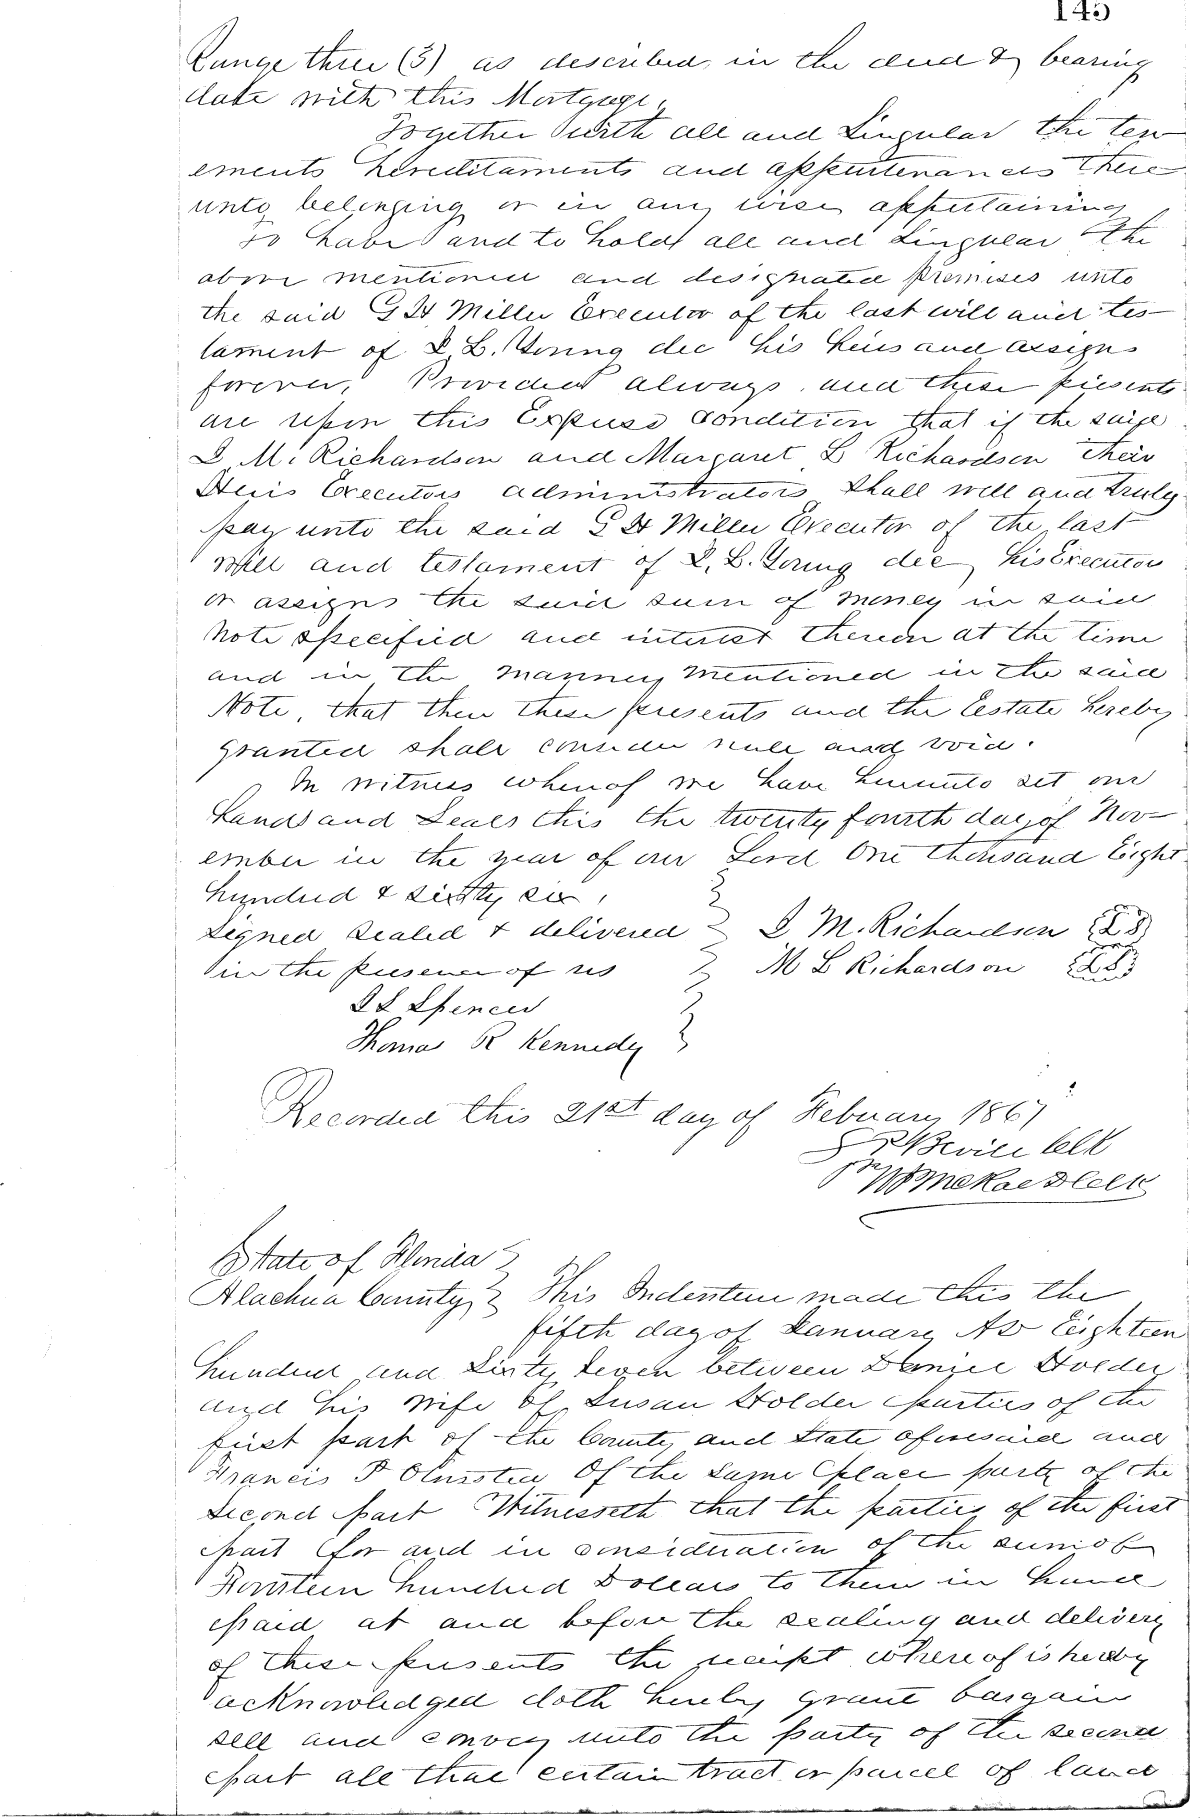 145
Range three (3) as described in the deed & bearing
date with this Mortgage,
Together with all and Singular the ten
ements hereditaments and appurtenances there
unto belonging or in any wise appertaining
To have and to hold all and Singular the
above mentioned and designated premises unto
the said G H Miller Executor of the last will and tes
tament of L. B. Young dec his heirs and assigns
forever, Provided always, and these presents
are upon this Express condition that if the said
D. M. Richardson and Margaret L Richardson their
Heirs Executors administrators Shall well and truly
pay unto the said G H Miller Executor of the last
will and testament of L. B. Young dec, his Executors
or assigns the said sum of money in said
Note specified and interest thereon at the time
and in the manner mentioned in the said
Note, that then these presents and the Estate hereby
granted shall consider null and void.
In witness whereof we have hereunto set our
hands and Seals this the twenty fourth day of Nov-
ember in the year of our Lord One thousand Eight
hundred & sixty six,
Signed Sealed & delivered D M. Richardson {LS}
in the presence of us M L Richardson {LS}
Spencer
Thomas R Kennedy
Recorded this 21st day of February 1867
Bevill Clk
pr McRae D Clerk
State of Florida
Alachua County This Indenture made this the
fifth day of January AD Eighteen
hundred and Sixty Seven between Daniel Holder
and his wife of Susan Holder parties of the
first part of the County and State aforesaid and
Francis P Olmsted Of the Same place party of the
Second part Witnesseth that the parties of the first
part for and in consideration of the sum of
Fourteen hundred Dollars to them in hand
paid at and before the sealing and delivery
of these presents the receipt whereof is hereby
acknowledged doth hereby grant bargain
sell and convey unto the party of the second
part all that certain tract or parcel of land